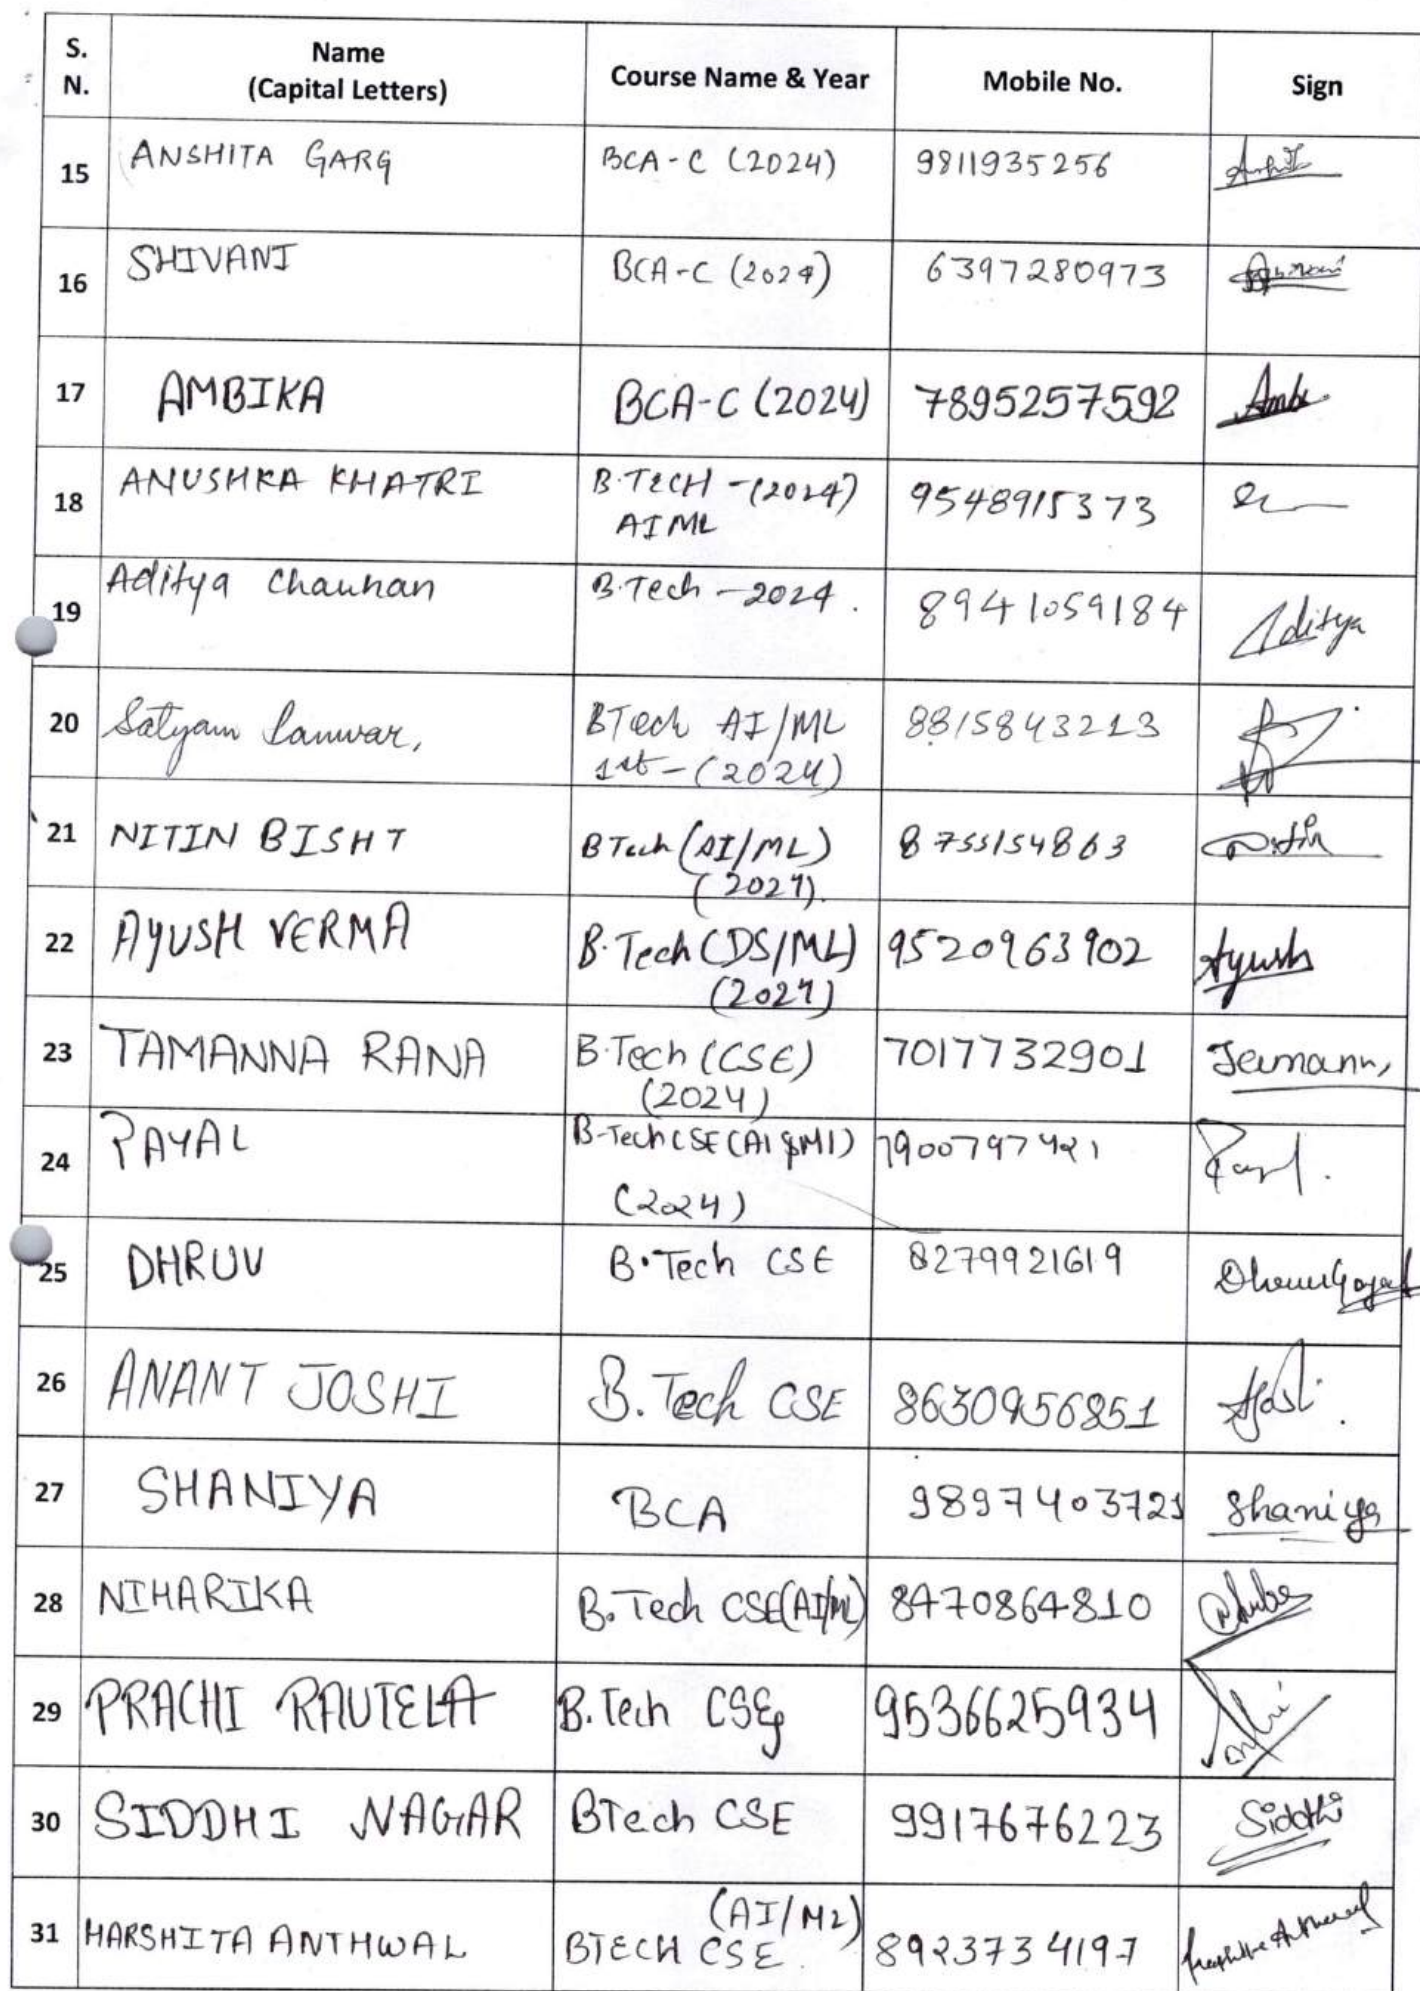 S. N. Name (Capital Letters) Course Name & Year Mobile No. Sign
15 ANSHITA GARG BCA-C (2024) 9811935256
16 SHIVANI BCA-C (2024) 6397280973
17 AMBIKA BCA-C (2024) 7895257592
18 ANUSHKA KHATRI B.TECH -(2024) 9548915373
AIML
19 Aditya Chauhan B.Tech - 2024. 8941059184 Aditya
20 Satyam BTech AI/ML 8815843213
1st - (2024)
21 NITIN BISHT BTech (AI/ML) 8755154863 Nitin
(2024).
22 AYUSH VERMA B.Tech (DS/ML) 9520963902 Ayush
(2024)
23 TAMANNA RANA B.Tech (CSE) 7017732901
(2024)
24 PAYAL B-Tech CSE (AI &Ml) 7900797421
(2024)
25 DHRUV B.Tech CSE 8279921619
26 ANANT JOSHI B.Tech CSE 8630956851
27 SHANIYA BCA 9897403721 Shaniya
28 NIHARIKA B.Tech CSE(AI/ML) 8470864810
29 PRACHI RAUTELA B.Tech CSE 9536625934
30 SIDDHI NAGAR BTech CSE 9917676223 Siddhi
(AI/ML)
31 HARSHITA ANTHWAL BTECH CSE. 8923734197